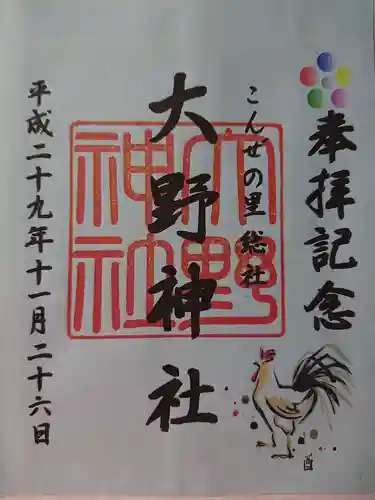 奉拝記念
こんぜの里総社
大野神社
大野神社
平成二十九年十一月二十六日
酉